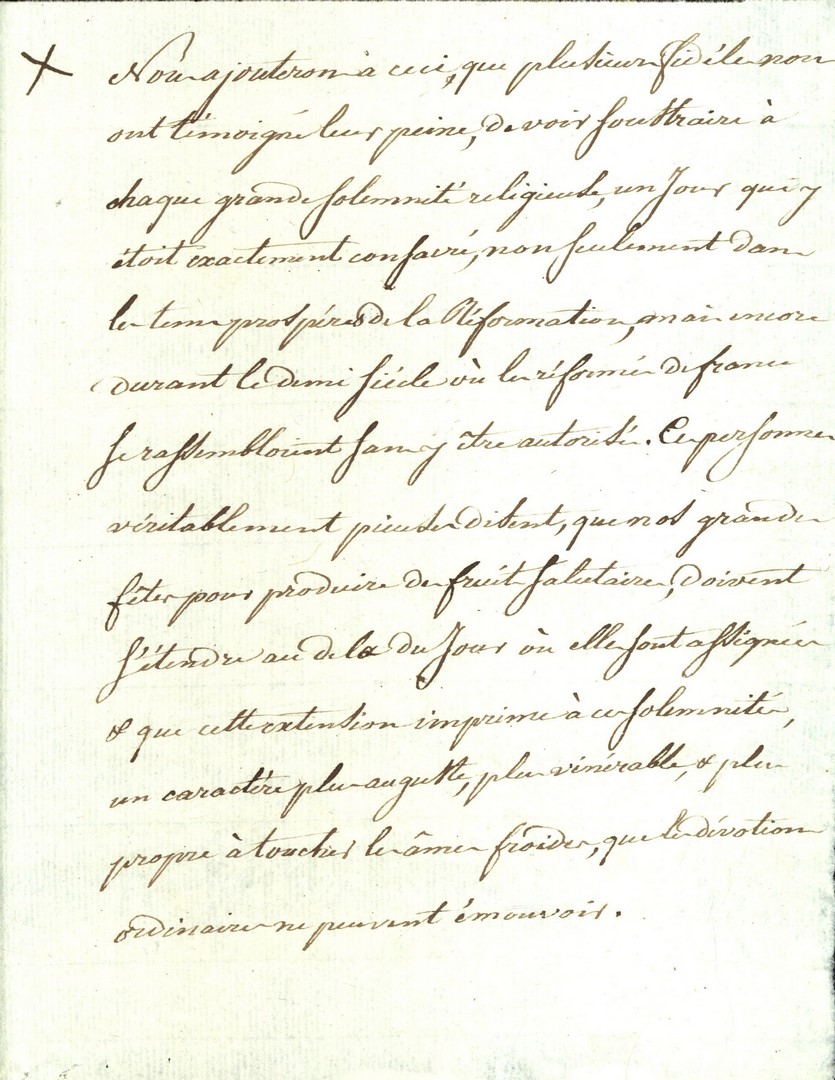 + Nous ajouterons à ceci, que plusieurs fidéles nous
ont témoigné leur peine, de voir soustraire à
chaque grande solemnité religieuse, un Jour qui y
étoit exactement consacré, non seulement dans
les tems prospéres de la Réformation, mais encore
durant le demi siécle où les réformés de france
se rassembloient sans y être autorisés. Ces personnes
véritablement pieuses disent, que nos grandes
fêtes pour produire des fruits salutaires, doivent
s'étendre au dela du Jour où elles sont assignées
& que cette extension imprime à ces solemnités,
un caractére plus auguste, plus vénérable, & plus
propre à toucher les âmes froides, que les dévotions
ordinaires ne peuvent émouvoir.